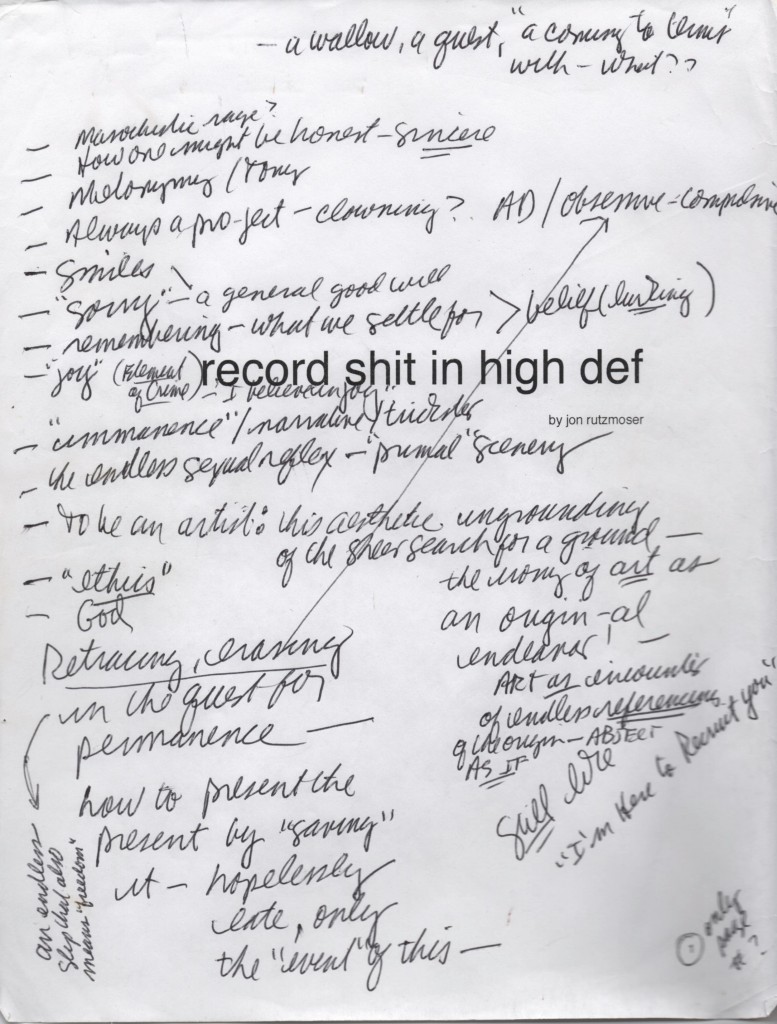 — a wallow, a quest, "a coming to terms"
with — what??
— Masochistic rage?
— How one might be honest — sincere
— Metonymy / Tony
— Always a pro-ject — clowning? AD / obsessive-compulsive
— Smiles
— "Sorry" — a general good will
— remembering — what we settle for > belief (lurking)
— "joy" (Element of Crime) — "I believe in joy"
record shit in high def
by jon rutzmoser
— "immanence" / narrative / trickster
— the endless sexual reflex — "primal" scenery
— to be an artist: this aesthetic ungrounding
of the sheer search for a ground —
the irony of art as
an origin-al
endeavor! —
ART as encounter
of endless referencing
of the origin — ABJECT
AS IF
Still live
"I'm Here to Recruit you"
— "ethics"
— God
Retracing, erasing
in the quest for
permanence —
how to present the
present by "saving"
it — hopelessly
late, only
the "event" of this —
an endless
slip that also
means "freedom"
① only
page
#?